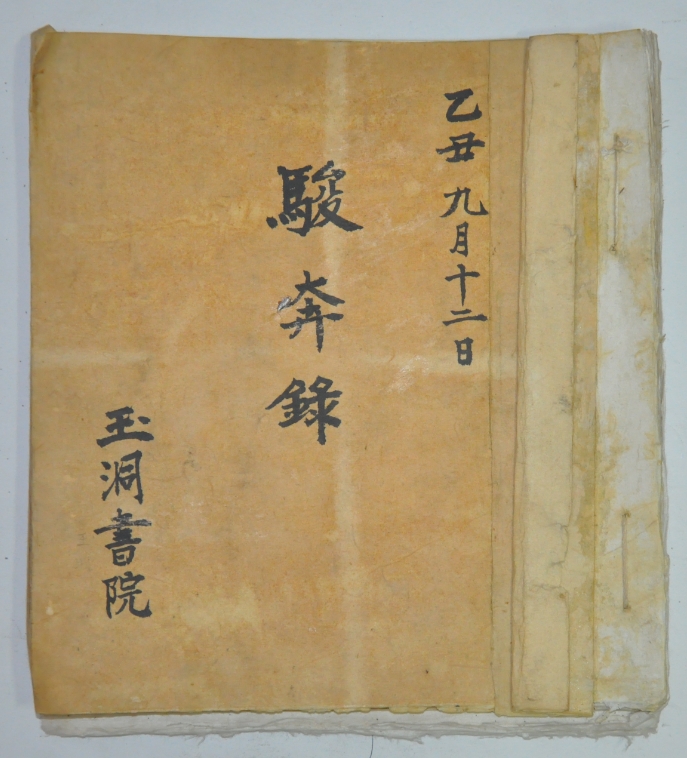 乙丑九月十二日
駿奔錄
玉洞書院